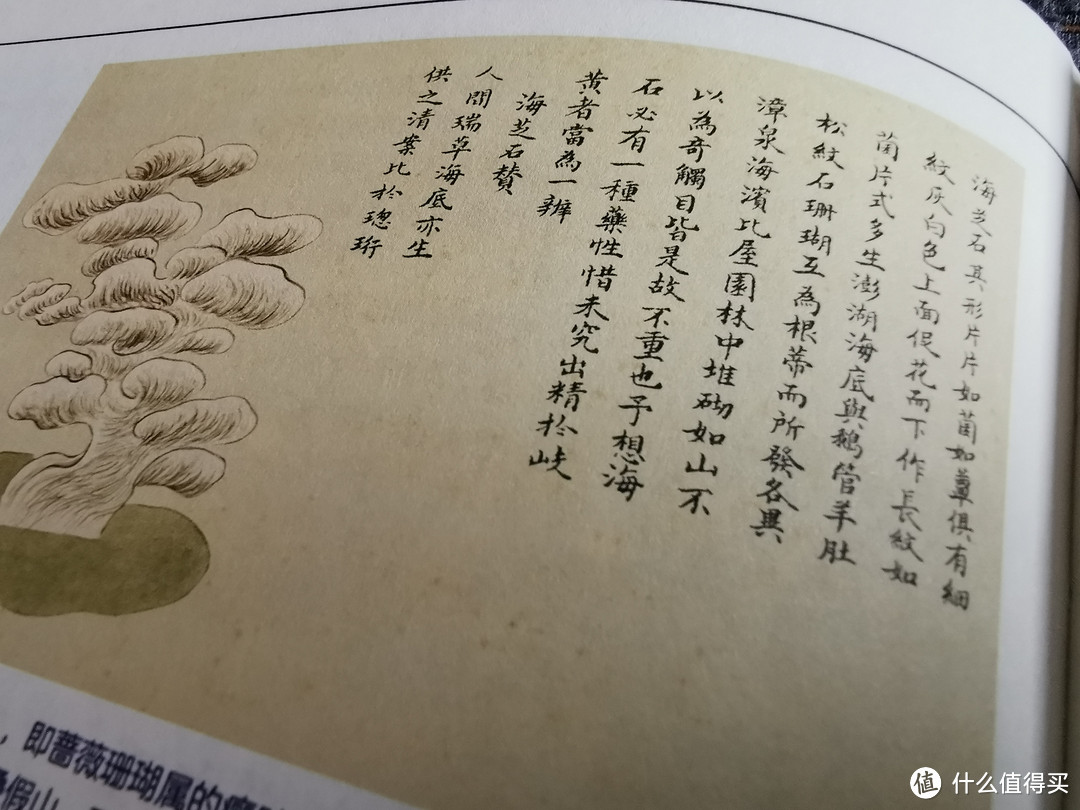 海芝石其形片片如菌如蕈俱有細
紋灰白色上面促花而下作長紋如
菌片式多生澎湖海底與鵝管羊肚
松紋石珊瑚互為根蒂而所發各異
漳泉海濱比屋園林中堆砌如山不
以為奇觸目皆是故不重也予想海
石必有一種藥性惜未究出精於岐
黄者當為一辨
海芝石贊
人間瑞草海底亦生
供之清案比於璁珩
，即蔷薇珊瑚属的
假山
值 什么值得买